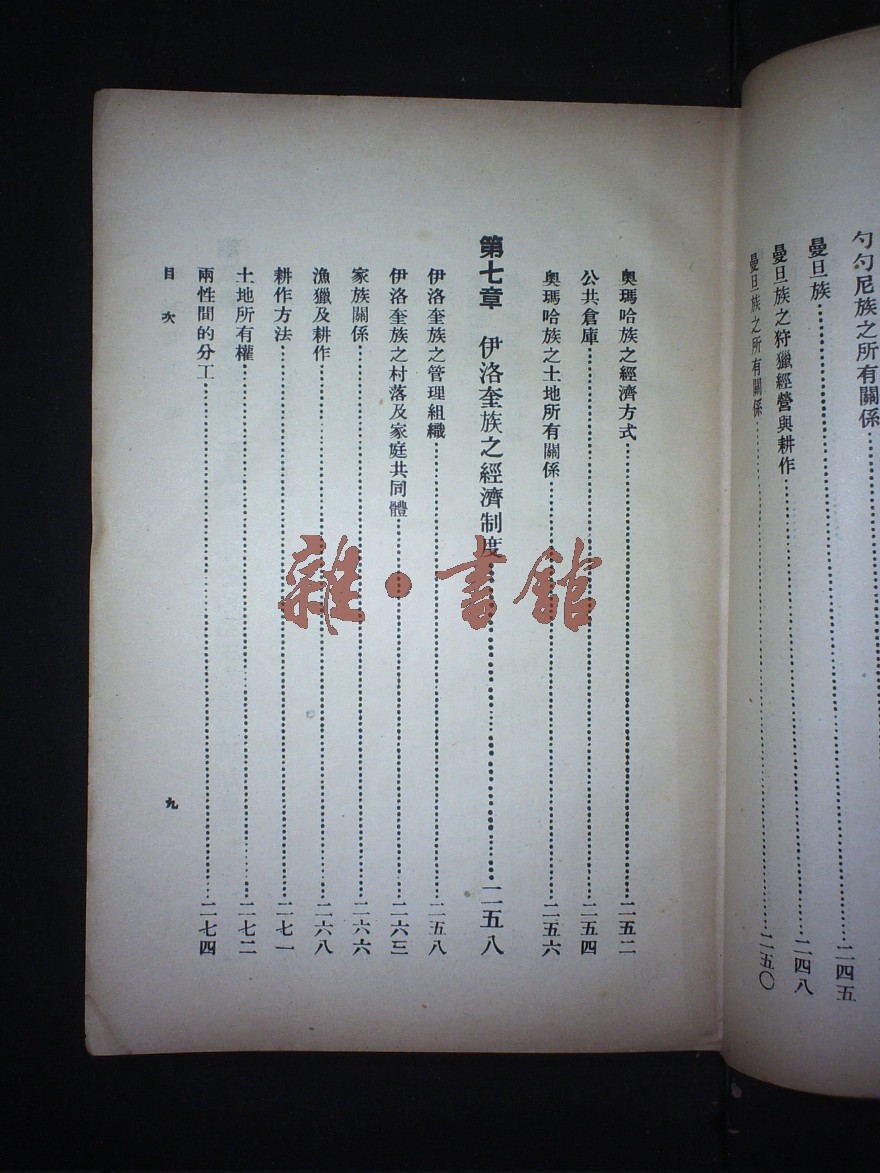 勺勺尼族之所有關係……二四五
曼旦族……二四五
曼旦族之狩獵經營與耕作……二四八
曼旦族之所有關係……二五〇
奧瑪哈族之經濟方式……二五二
公共倉庫……二五四
奧瑪哈族之土地所有關係……二五六
第七章 伊洛奎族之經濟制度……二五八
伊洛奎族之管理組織……二五八
伊洛奎族之村落及家庭共同體……二六三
家族關係……二六六
漁獵及耕作……二六八
耕作方法……二七一
土地所有權……二七二
兩性間的分工……二七四
目次
九
雜·書館